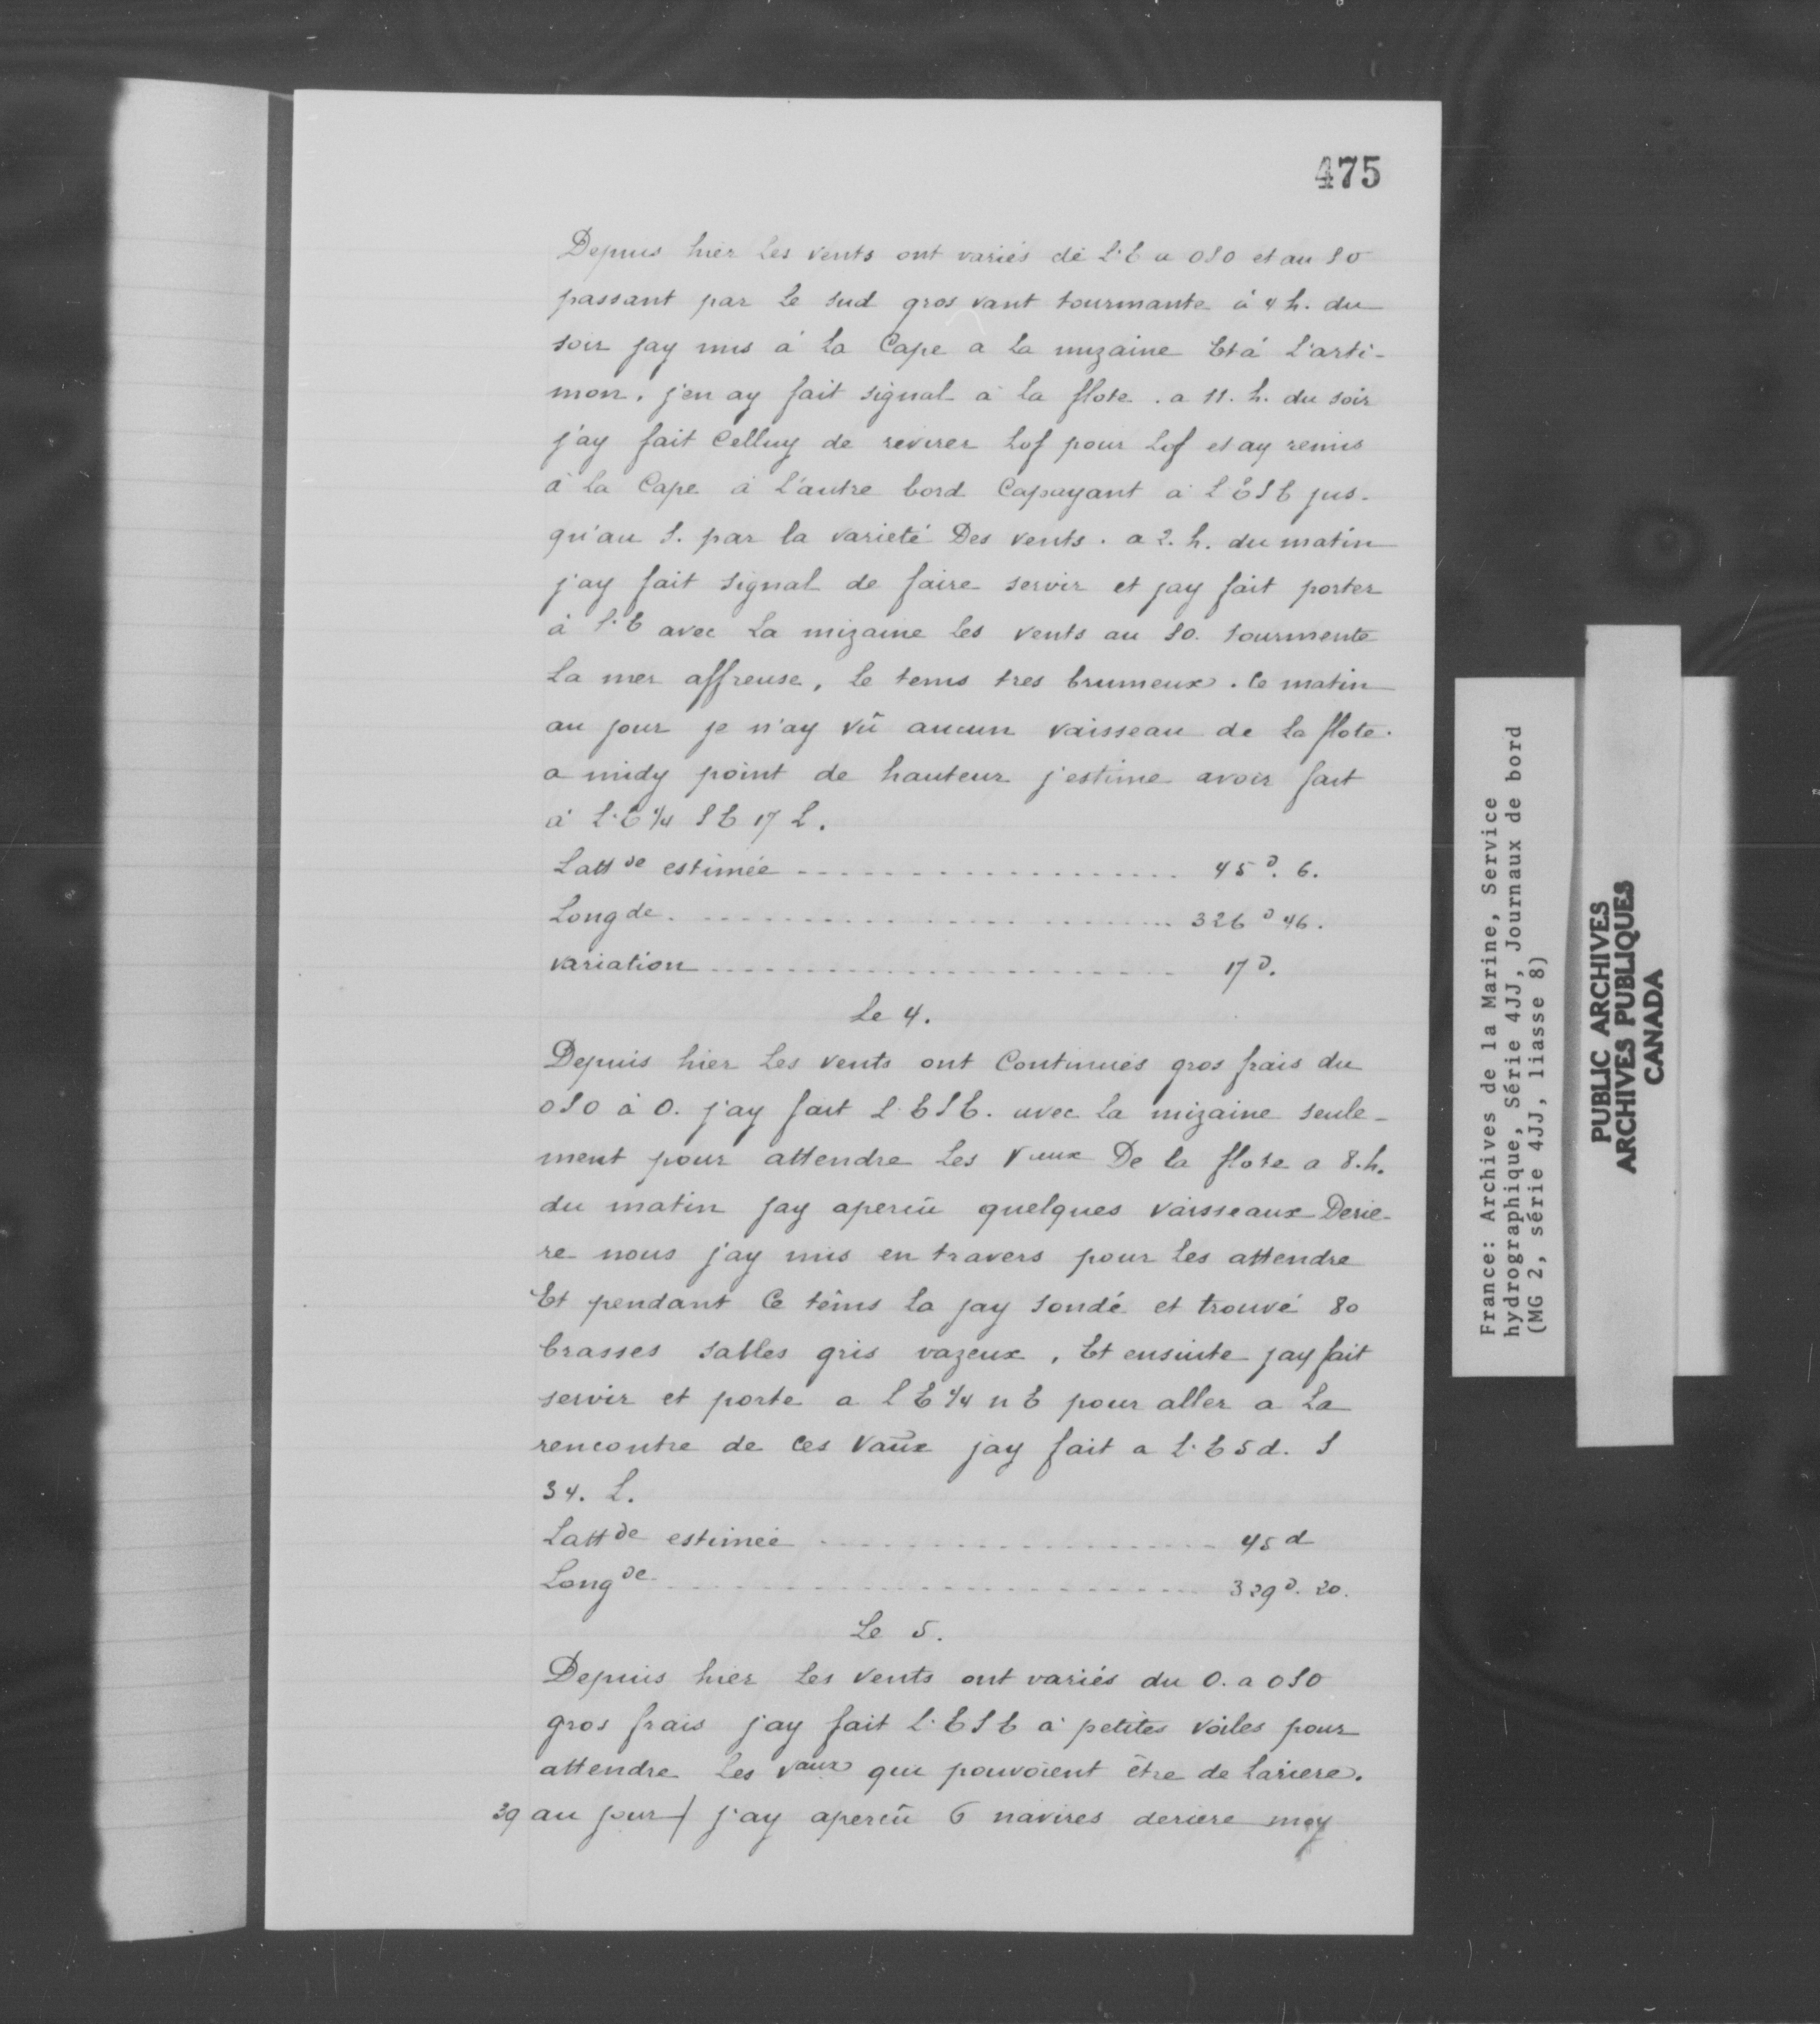 475
Depuis hier les vents ont variés de l'E a OSO et au SO
passant par le sud gros vant tourmante à 4 h. du
soir jay mis à la Cape a la mizaine Et à l'arti-
mon. j'en ay fait signal à la flote. a 11. h. du soir
j'ay fait Celluy de revirer lof pour lof et ay remis
à la Cape à l'autre bord Capayant à l'ESE jus-
qu'au S. par la varieté Des vents. a 2. h. du matin
j'ay fait signal de faire servir et jay fait porter
à l'E avec la mizaine les vents au SO. tourmente
la mer affreuse, le tems tres brumeux. Ce matin
au jour je n'ay vû aucun vaisseau de la flote.
a midy point de hauteur j'estime avoir fait
à l'E 1/4 SE 17 L.
Lattde estimée 45 D. 6.
Longde. 326 D 46.
variation 17 D.
Le 4.
Depuis hier les vents ont Continués gros frais du
OSO à O. j'ay fait l'ESE. avec la mizaine seule-
ment pour attendre les Vaux De la flote a 8. h.
du matin jay aperçû quelques vaisseaux Derie-
re nous j'ay mis en travers pour les attendre
Et pendant Ce têms la jay sondé et trouvé 80
brasses sables gris vazeux, Et ensuite jay fait
servir et porte a l E 1/4 n E pour aller a la
rencontre de Ces Vaux jay fait a l'E 5 d. S
34. L.
Lattde estimée 45 d
Longde 329 D. 20.
Le 5.
Depuis hier les vents ont variés du O. a OSO
gros frais j'ay fait l'ESE à petites voiles pour
attendre les vaux qui pouvoient être de lariere.
39 au jour / j'ay aperçû 6 navires deriere moy
France: Archives de la Marine, Service
hydrographique, Série 4JJ, Journaux de bord
(MG 2, série 4JJ, liasse 8)
PUBLIC ARCHIVES
ARCHIVES PUBLIQUES
CANADA